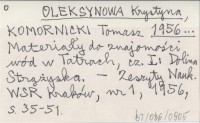 OLEKSYNOWA Krystyna,
KOMORNICKI Tomasz 1956...
Materiały do znajomości
wód w Tatrach, cz. I: Dolina
Strążyska. – Zeszyty Nauk.
WSR Kraków, nr 1, 1956,
s. 35-51.